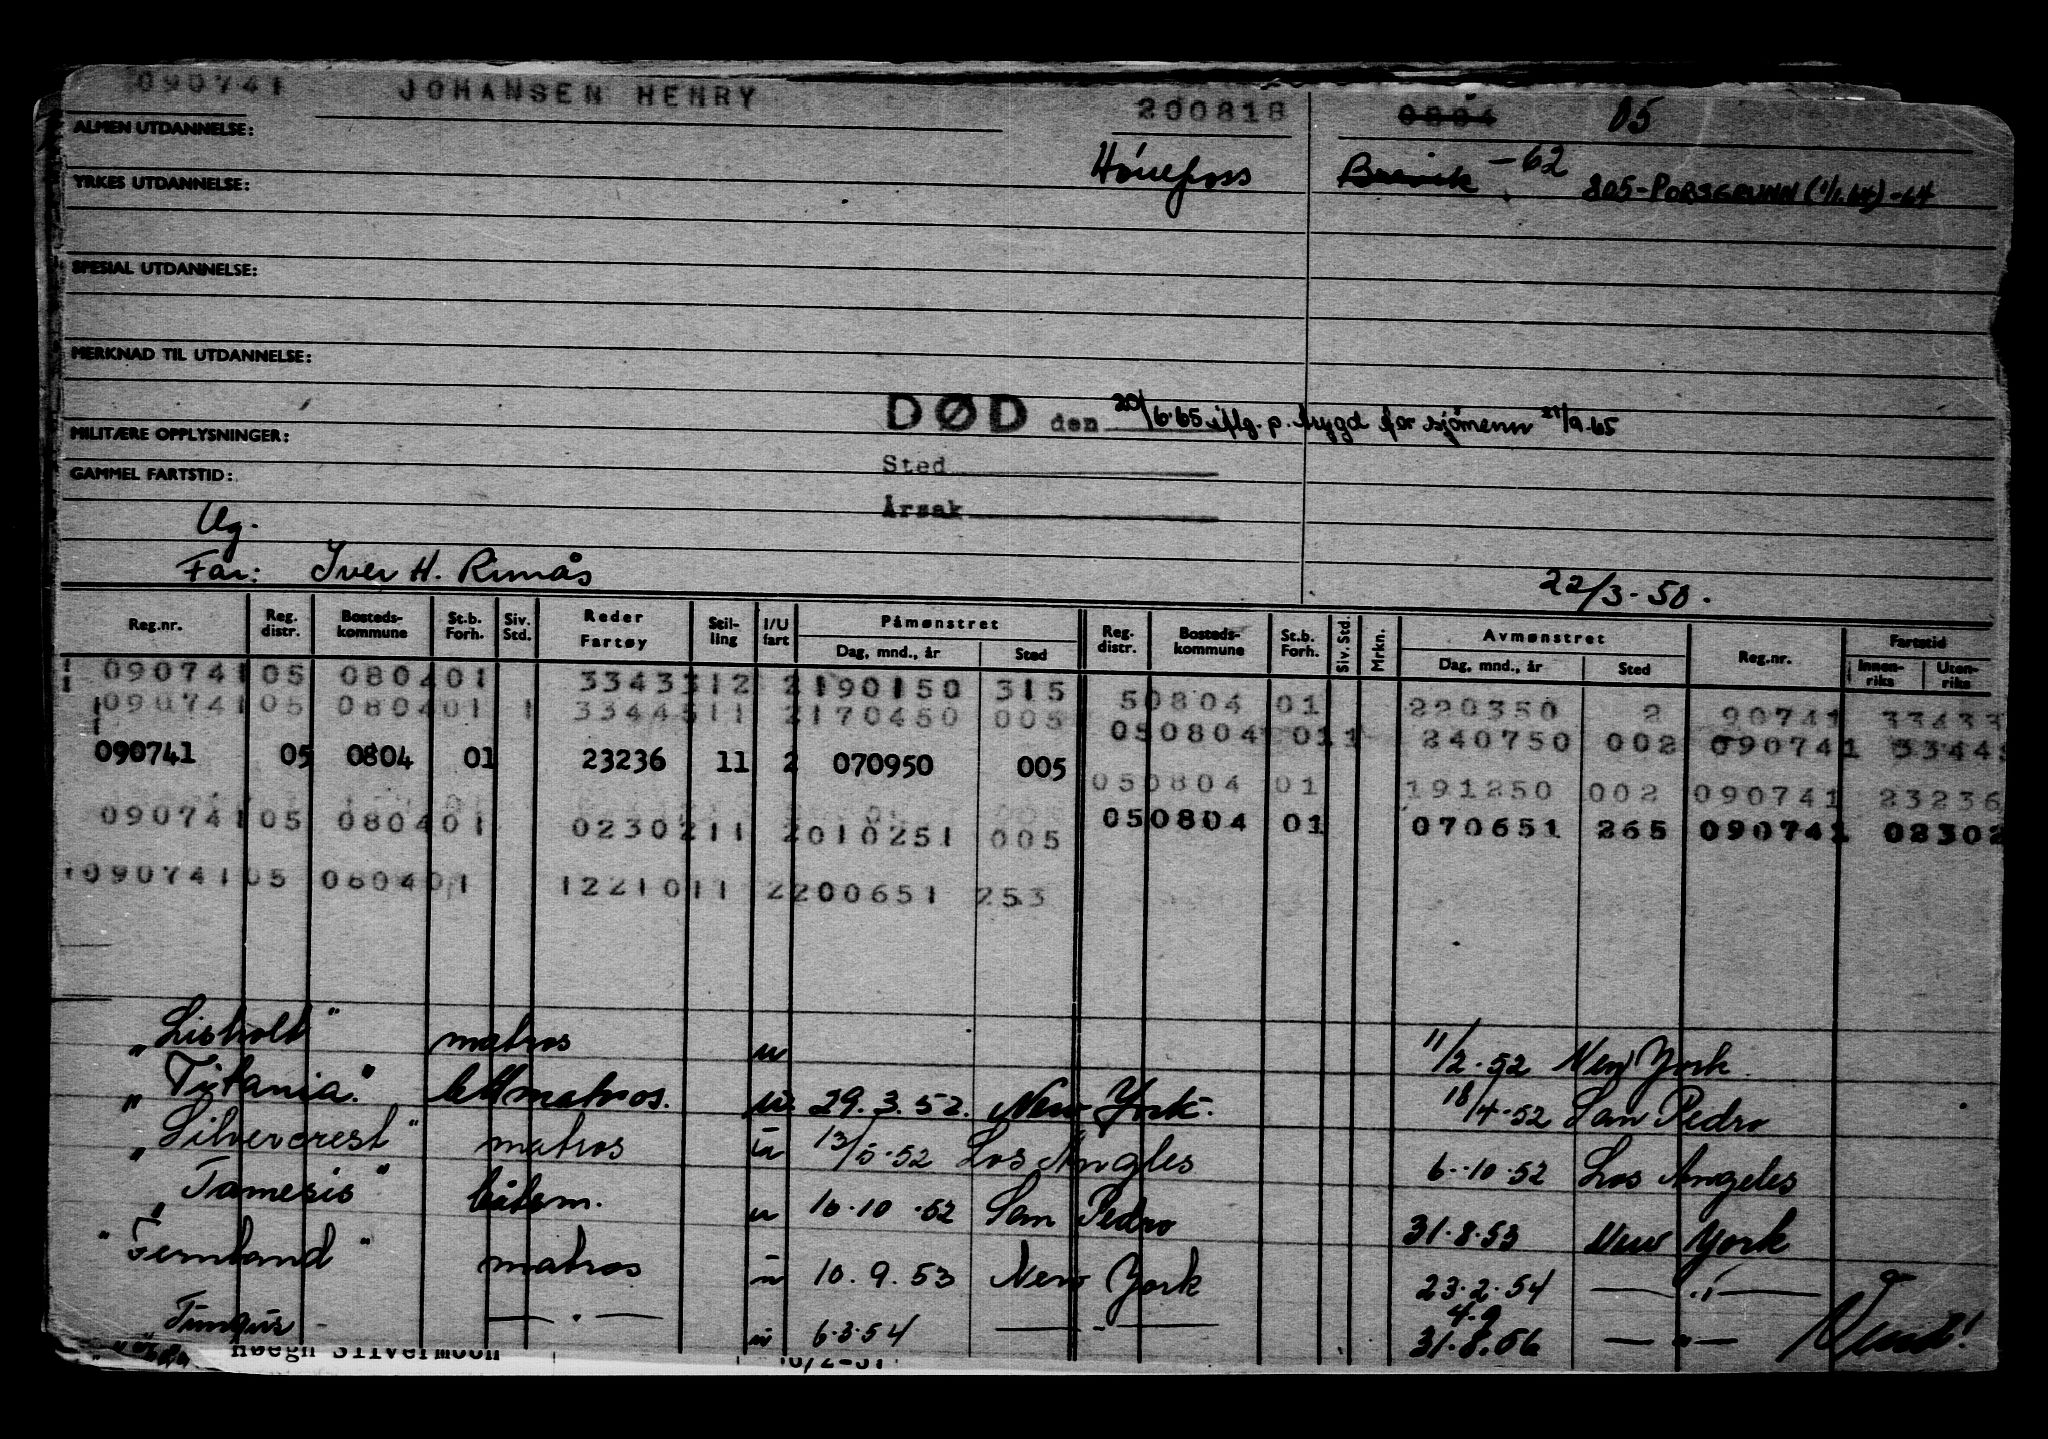 090741 JOHANSEN HENRY 200818 0804 05
ALMEN UTDANNELSE:
Hönefoss Brevik -62 805-PORSGRUNN (1/1.64) -64
YRKES UTDANNELSE:
SPESIAL UTDANNELSE:
MERKNAD TIL UTDANNELSE:
DØD den 20/6.65 iflg. p. trygd for sjömenn 21/9.65
MILITÆRE OPPLYSNINGER:
Sted
GAMMEL FARTSTID:
Årsak
Ug.
Far: Iver H. Rimås 22/3-50.
Reg.nr. Reg. distr. Bosteds-kommune St.b. Forh. Siv. Std. Reder Fartøy Stil-ling I/U fart Påmønstret Dag, mnd., år Sted Reg. distr. Bosteds-kommune St.b. Forh. Siv. Std. Mrkn. Avmønstret Dag, mnd., år Sted Reg.nr. Fartstid Innen-riks Uten-riks
090741 05 0804 01 33433 12 2 190150 315 50804 01 220350 2 90741 33433
090741 05 0804 01 1 33445 11 2 170450 005 050804 01 1 240750 002 090741 33445
090741 05 0804 01 23236 11 2 070950 005 050804 01 191250 002 090741 23236
090741 05 0804 01 02302 11 2 010251 005 050804 01 070651 265 090741 02302
090741 05 0804 01 12210 11 2 200651 253
"Lisholt" matros u 11/2-52 New York
"Titania" lettmatros. u. 29.3.52. New York. 18/4-52 San Pedro
"Silvercrest" matros u 13/5-52 Los Angles 6-10-52 Los Angeles
"Tamesis" båtsm. u 16-10-52 San Pedro 31-8-53 New York
"Fernland" matros u 10.9.53 New York 23-2-54 — " —
Fungus — " — u 6-3-54 — " — 4.9 31.8.56 — " — Vend!
Høegh Silvermoon